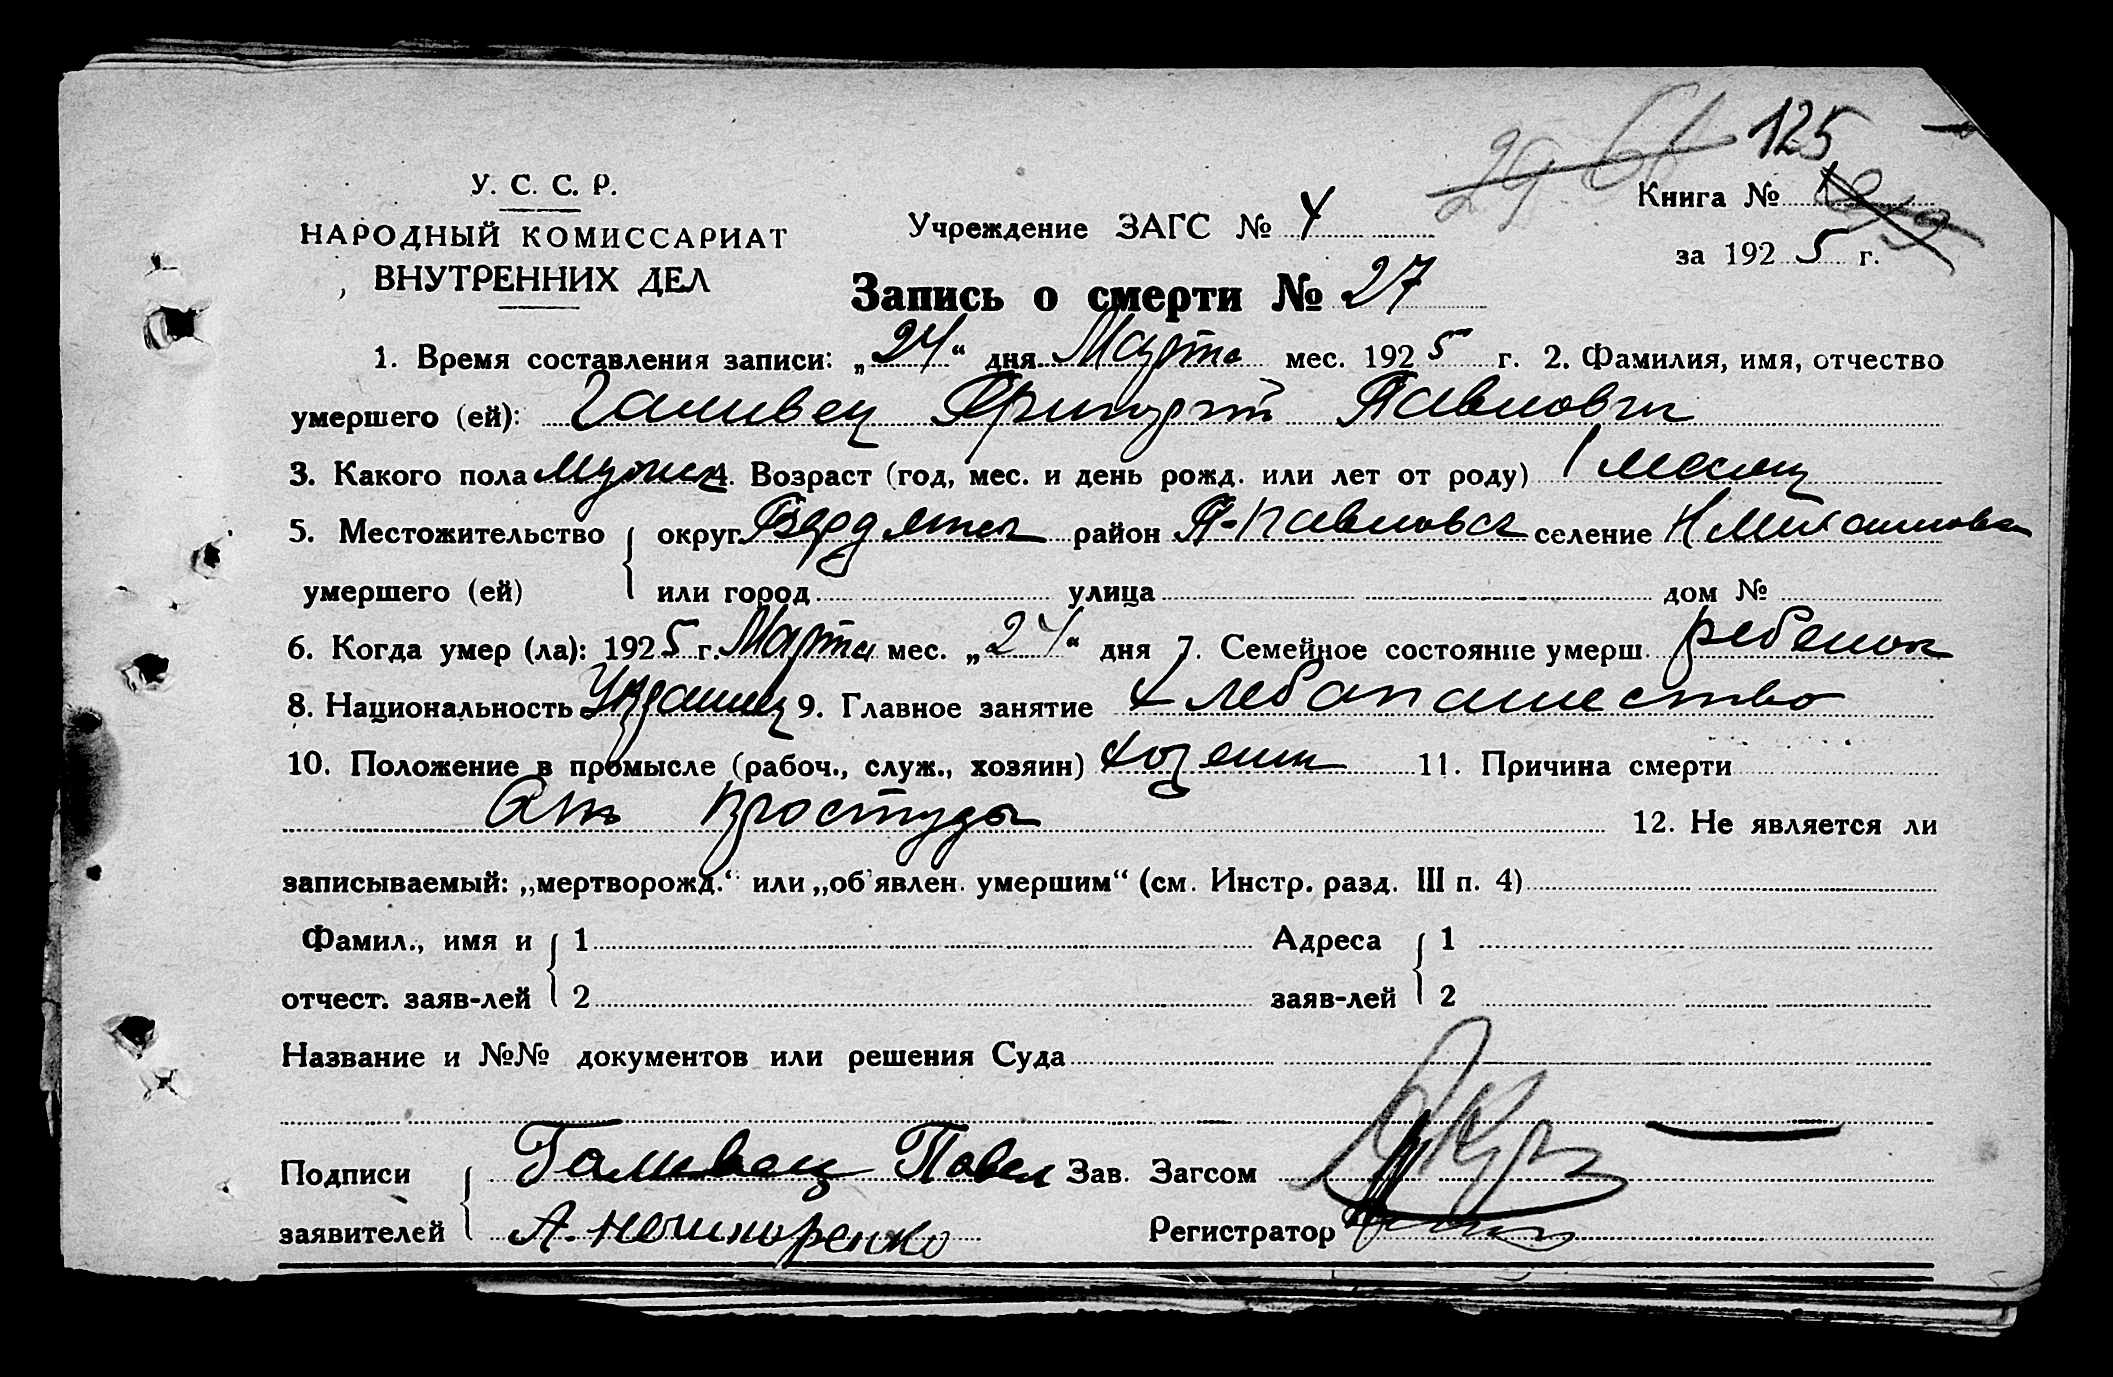 125
У. С. С. Р.
НАРОДНЫЙ КОМИССАРИАТ
ВНУТРЕННИХ ДЕЛ
Учреждение ЗАГС № 4
Книга №
за 1925 г.
Запись о смерти № 27
1. Время составления записи: „24“ дня Марта мес. 1925 г. 2. Фамилия, имя, отчество
умершего (ей): Галивец Григорий Павлович
3. Какого пола мужск 4. Возраст (год, мес. и день рожд. или лет от роду) 1 месяц
5. Местожительство округ Бердянск район П-Павловск селение Н Михайловка
умершего (ей) или город улица дом №
6. Когда умер (ла): 1925 г. Марта мес. „24“ дня 7. Семейное состояние умерш. ребенок
8. Национальность Украинец 9. Главное занятие Хлебопашество
10. Положение в промысле (рабоч., служ., хозяин) хозяин 11. Причина смерти
Отъ простуды 12. Не является ли
записываемый: „мертворожд.“ или „об'явлен. умершим“ (см. Инстр. разд. III п. 4)
Фамил., имя и 1 Адреса 1
отчест. заяв-лей 2 заяв-лей 2
Название и №№ документов или решения Суда
Подписи Галивец Павел Зав. Загсом
заявителей А. Регистратор